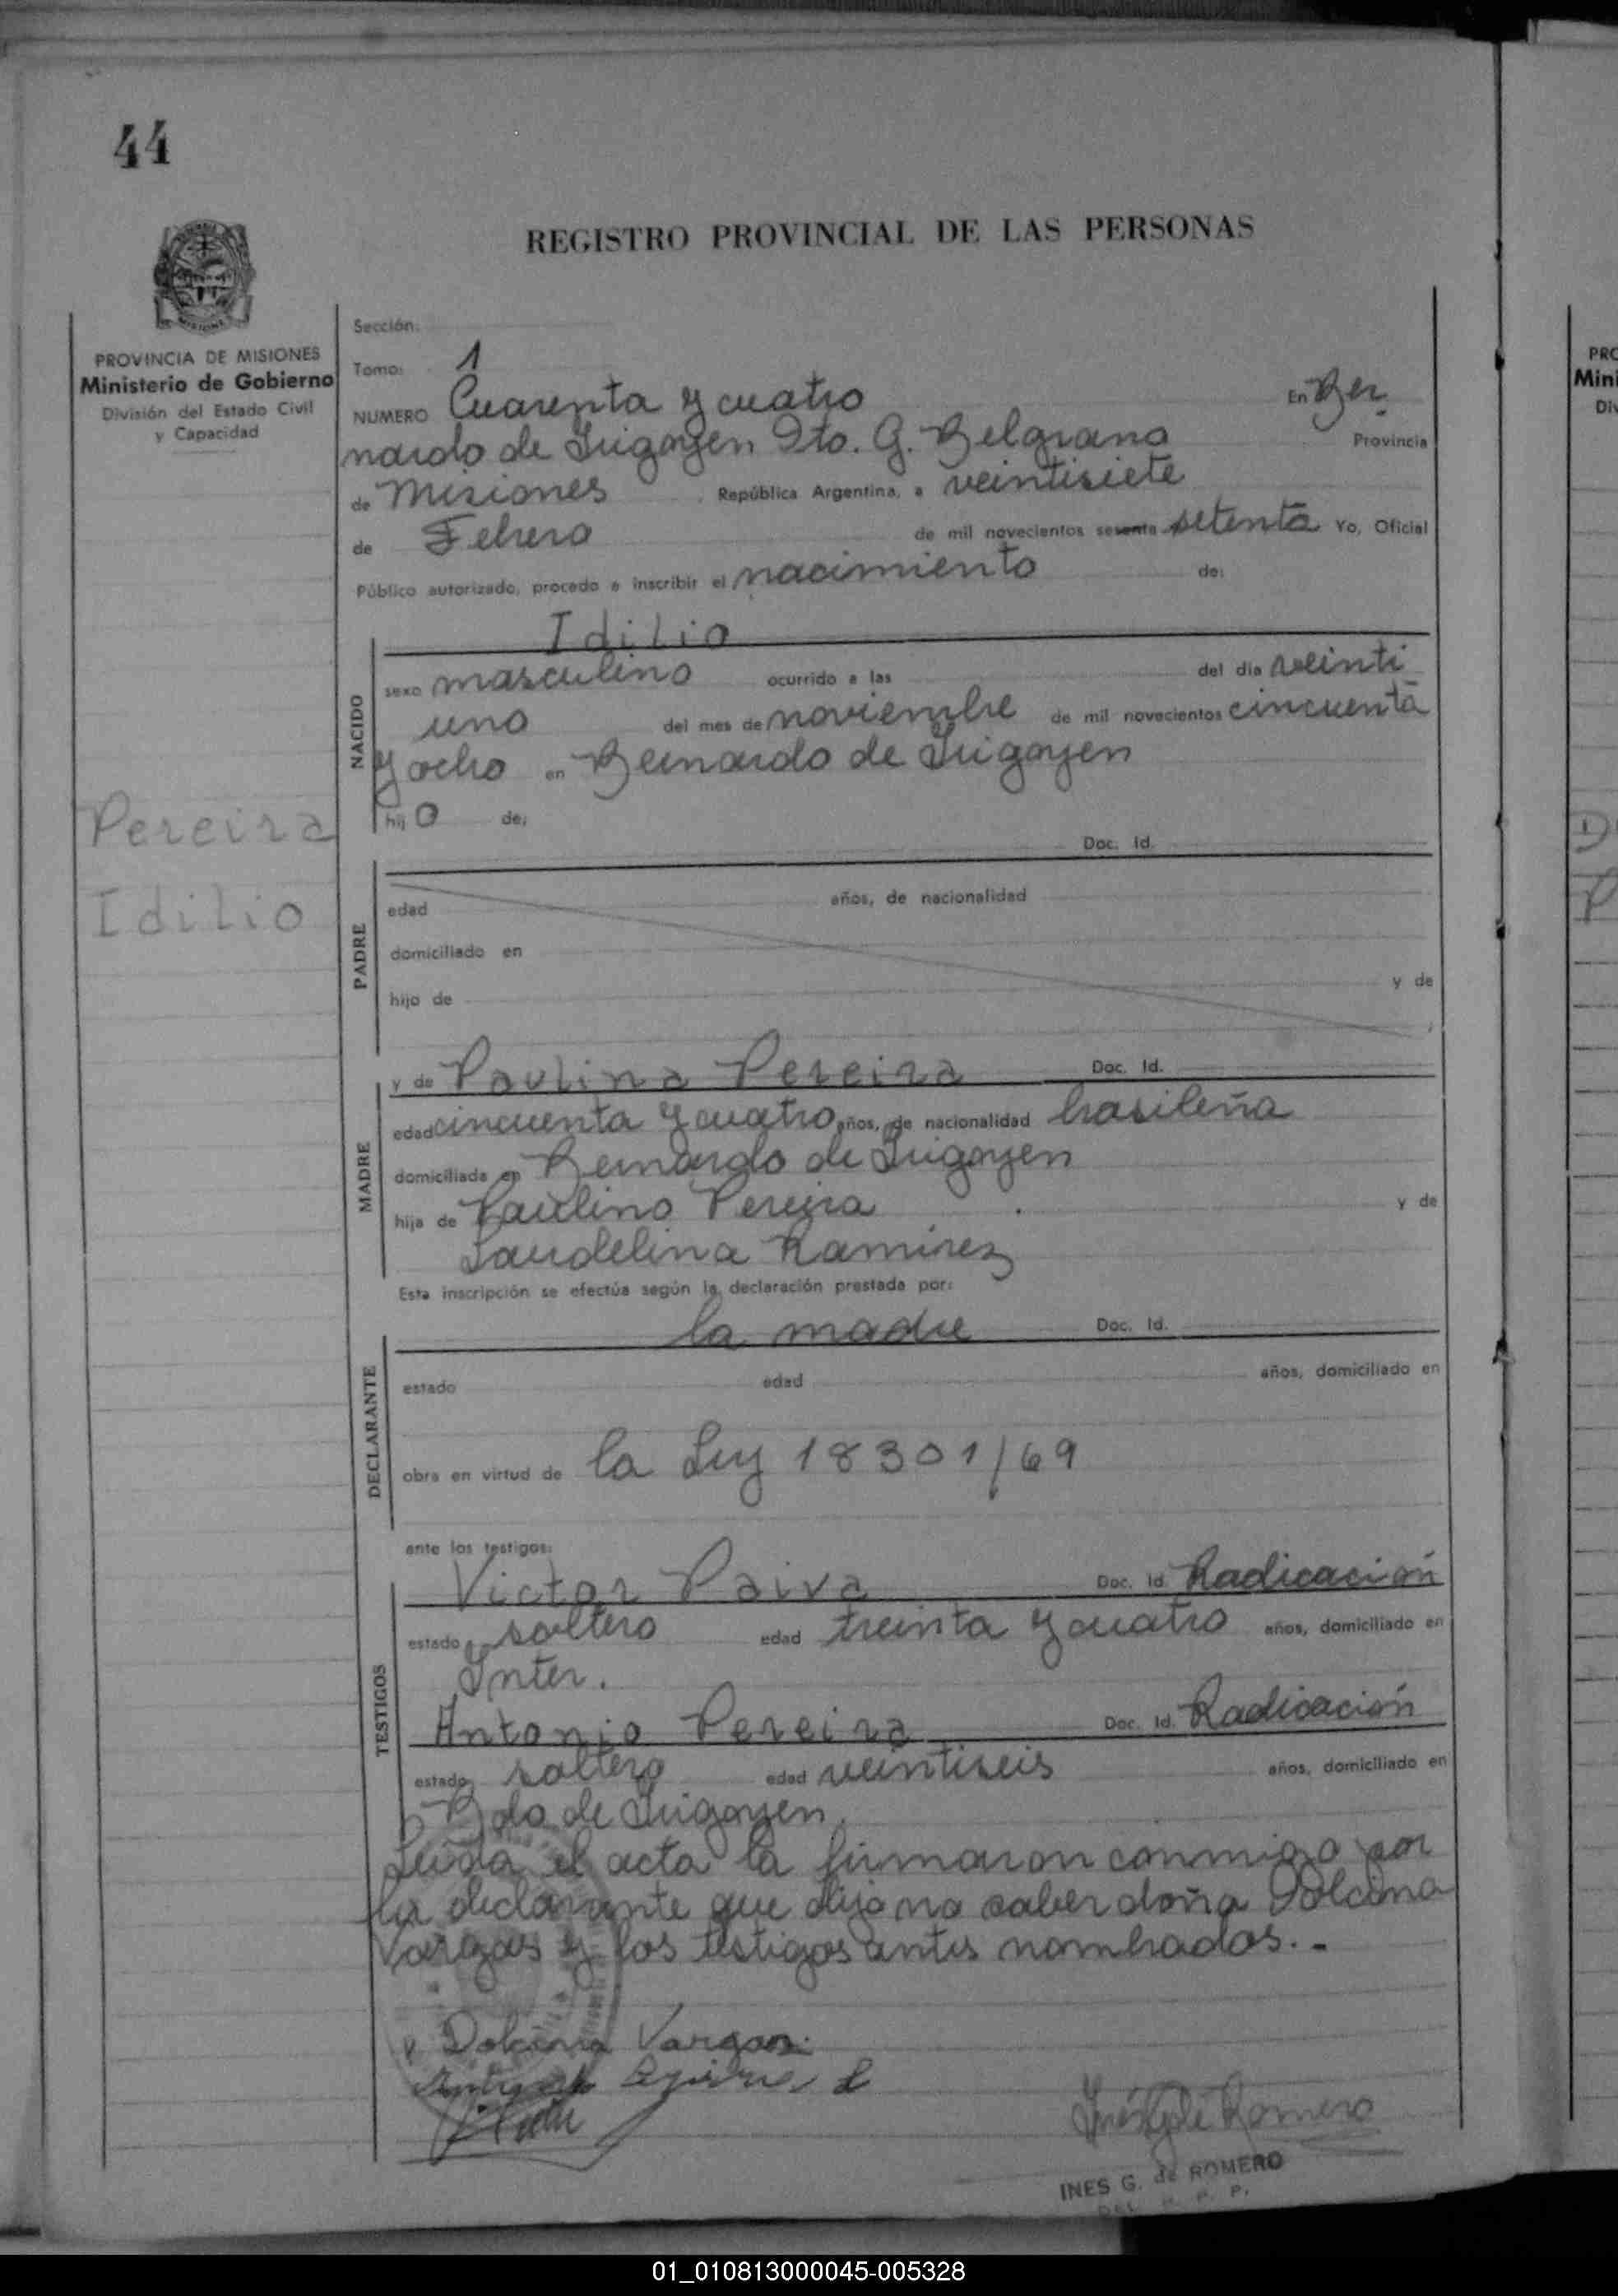 44
REGISTRO PROVINCIAL DE LAS PERSONAS
MISIONES
PROVINCIA DE MISIONES
Ministerio de Gobierno
División del Estado Civil
y Capacidad
Pereira
Idilio
Sección:
Tomo: 1
NUMERO Cuarenta y cuatro En Ber
nardo de Irigoyen Dto. G. Belgrano Provincia
de Misiones República Argentina, a veintisiete
de Febrero de mil novecientos sesenta setenta Yo, Oficial
Público autorizado, procedo a inscribir el nacimiento de:
Idilio
NACIDO
sexo masculino ocurrido a las del día veinti
uno del mes de noviembre de mil novecientos cincuenta
y ocho en Bernardo de Irigoyen
hij o de:
Doc. Id.
PADRE
edad años, de nacionalidad
domiciliado en
hijo de y de
y de Paulina Pereira Doc. Id.
MADRE
edad cincuenta y cuatro años, de nacionalidad brasileña
domiciliada en Bernardo de Irigoyen
hija de Paulino Pereira y de
Laudelina Ramirez
Esta inscripción se efectúa según la declaración prestada por:
la madre Doc. Id.
DECLARANTE
estado edad años, domiciliado en
obra en virtud de la Ley 18301/69
ante los testigos:
Victor Paiva Doc. Id. Radicación
TESTIGOS
estado soltero edad treinta y cuatro años, domiciliado en
Inter.
Antonio Pereira Doc. Id. Radicación
estado soltero edad veintiseis años, domiciliado en
Bdo de Irigoyen
Leída el acta la firmaron conmigo por
la declarante que dijo no saber doña Dolcina
Vargas y los testigos antes nombrados.-
Dolcina Vargas
Inés G de Romero
INES G. de ROMERO
DEL. R. P. P.
01_010813000045-005328